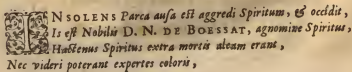 INSOLENS Parca ausa est aggredi Spiritum, & occidit,
Is est Nobilis D. N. DE BOESSAT, agnomine Spiritus,
Hactenus Spiritus extra mortis aleam erant,
Nec videri poterant expertes coloris,